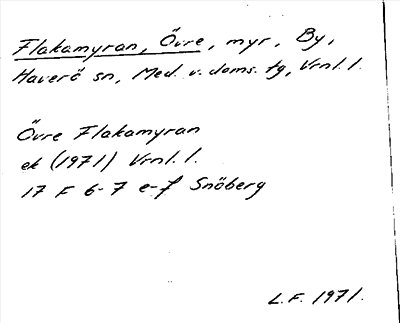 Flakamyran, Övre, myr, By,
Haverö sn, Med. v. doms. tg, Vrnl. l.
Övre Flakamyran
ek (1971) Vrnl. l.
17 F 6-7 e-f Snöberg
L.F. 1971.